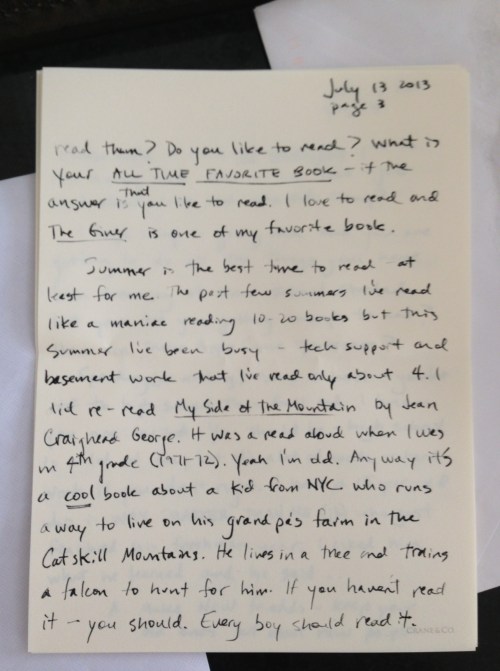 July 13 2013
page 3
read them? Do you like to read? What is
your ALL TIME FAVORITE BOOK - if the
answer is that you like to read. I love to read and
The Giver is one of my favorite book.
Summer is the best time to read - at
least for me. The past few summers I've read
like a maniac reading 10-20 books but this
Summer I've been busy - tech support and
basement work that I've read only about 4. I
did re-read My Side of the Mountain by Jean
Craighead George. It was a read aloud when I was
in 4th grade (1971-72). Yeah I'm old. Anyway it's
a cool book about a kid from NYC who runs
away to live on his grandpa's farm in the
Catskill Mountains. He lives in a tree and trains
a falcon to hunt for him. If you haven't read
it - you should. Every boy should read it.
CRANE & CO.